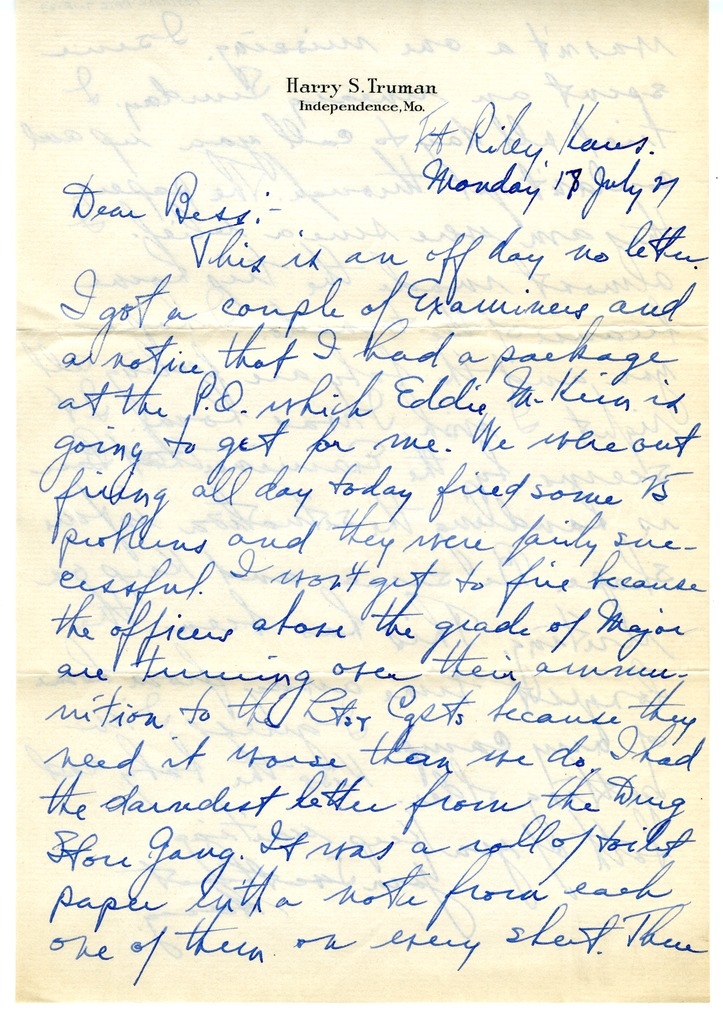 Harry S. Truman
Independence, Mo.
Ft Riley, Kans.
Monday 18 July 27
Dear Bess:-
This is an off day no letter.
I got a couple of Examiners and
a notice that I had a package
at the P.O. which Eddie McKim is
going to get for me. We were out
firing all day today fired some 75
problems and they were fairly suc-
cessful. I won't get to fire because
the officers above the grade of Major
are turning over their ammu-
nition to the Lts & Capts because they
need it worse than we do. I had
the darndest letter from the Drug
Store Gang. It was a roll of toilet
paper with a note from each
one of them on every sheet. There